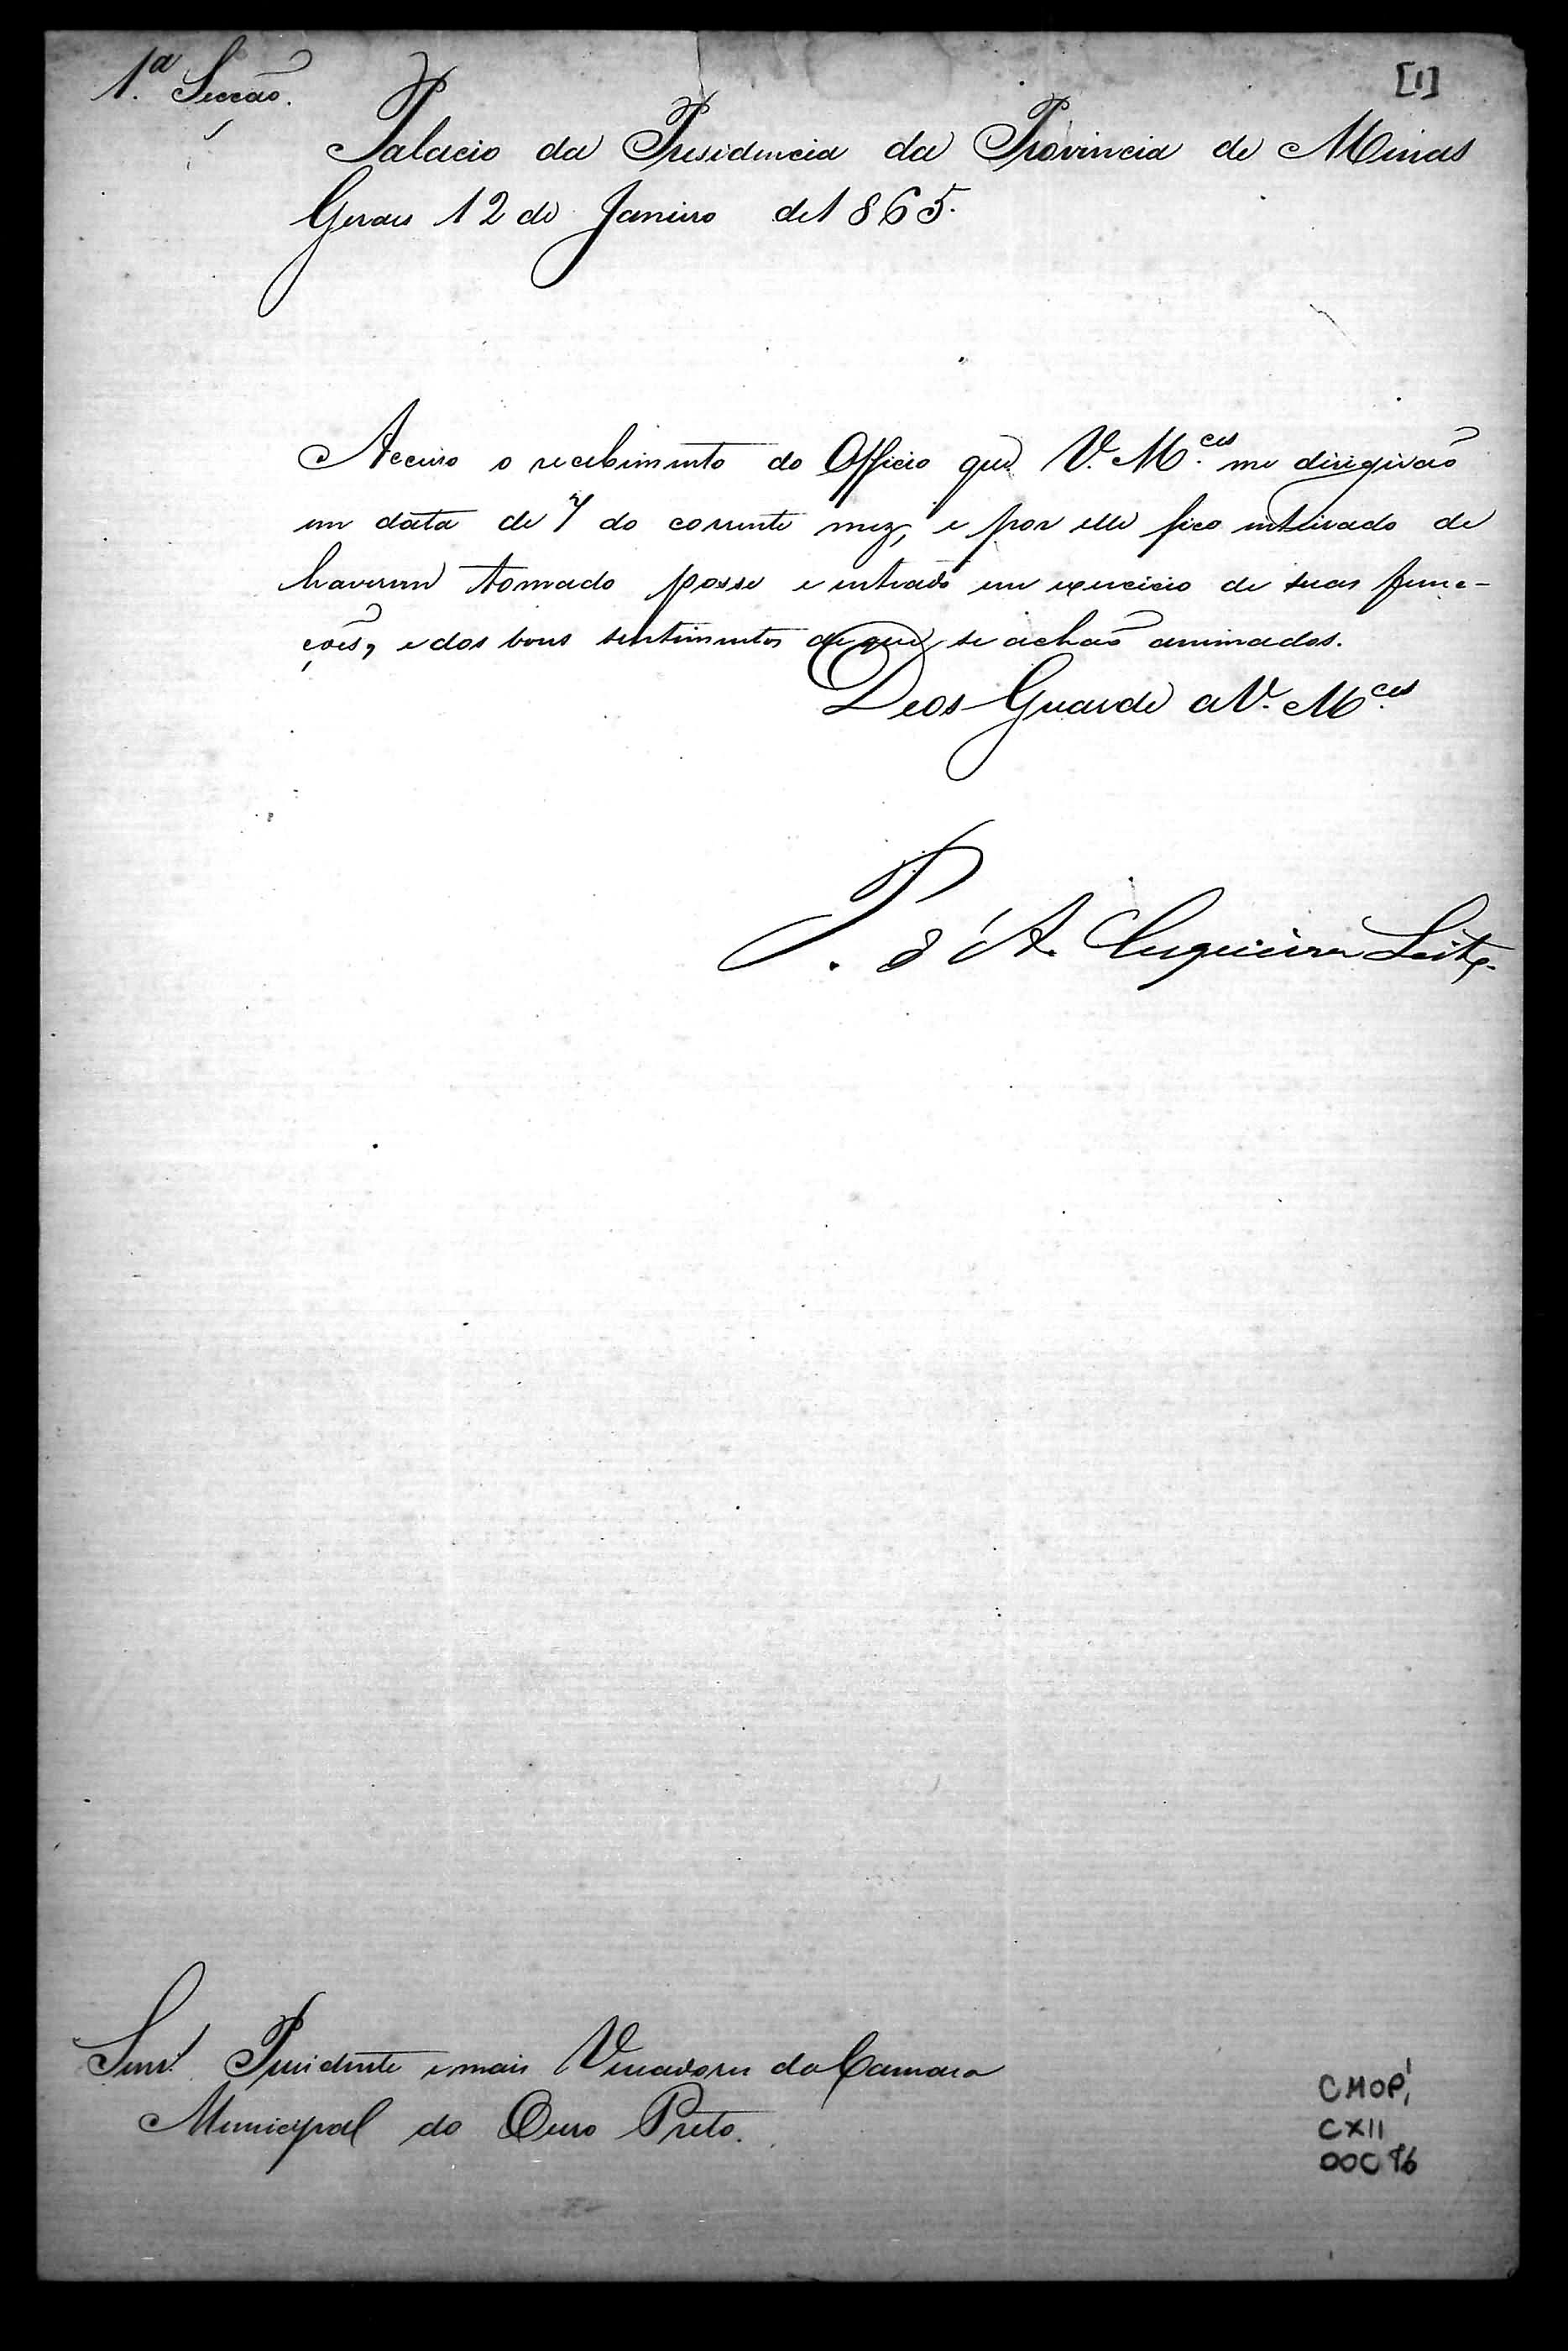 1.ª Secção.
[1]
Palacio da Presidencia da Provincia de Minas
Geraes 12 de Janeiro de 1865.
Accuso o recebimento do Officio que V. M.ces me dirigirão
em data de 7 do corrente mez, e por elle fico inteirado de
haverem tomado posse e entrado em exercicio de suas func-
ções, e dos bons sentimentos de que se achão animados.
Deos Guarde a V. M.ces
P. d'A. Cerqueira Leite.
Senr. Presidente e mais Vereadores da Camara
Municipal do Ouro Preto.
CMOP,
CXII
DOC